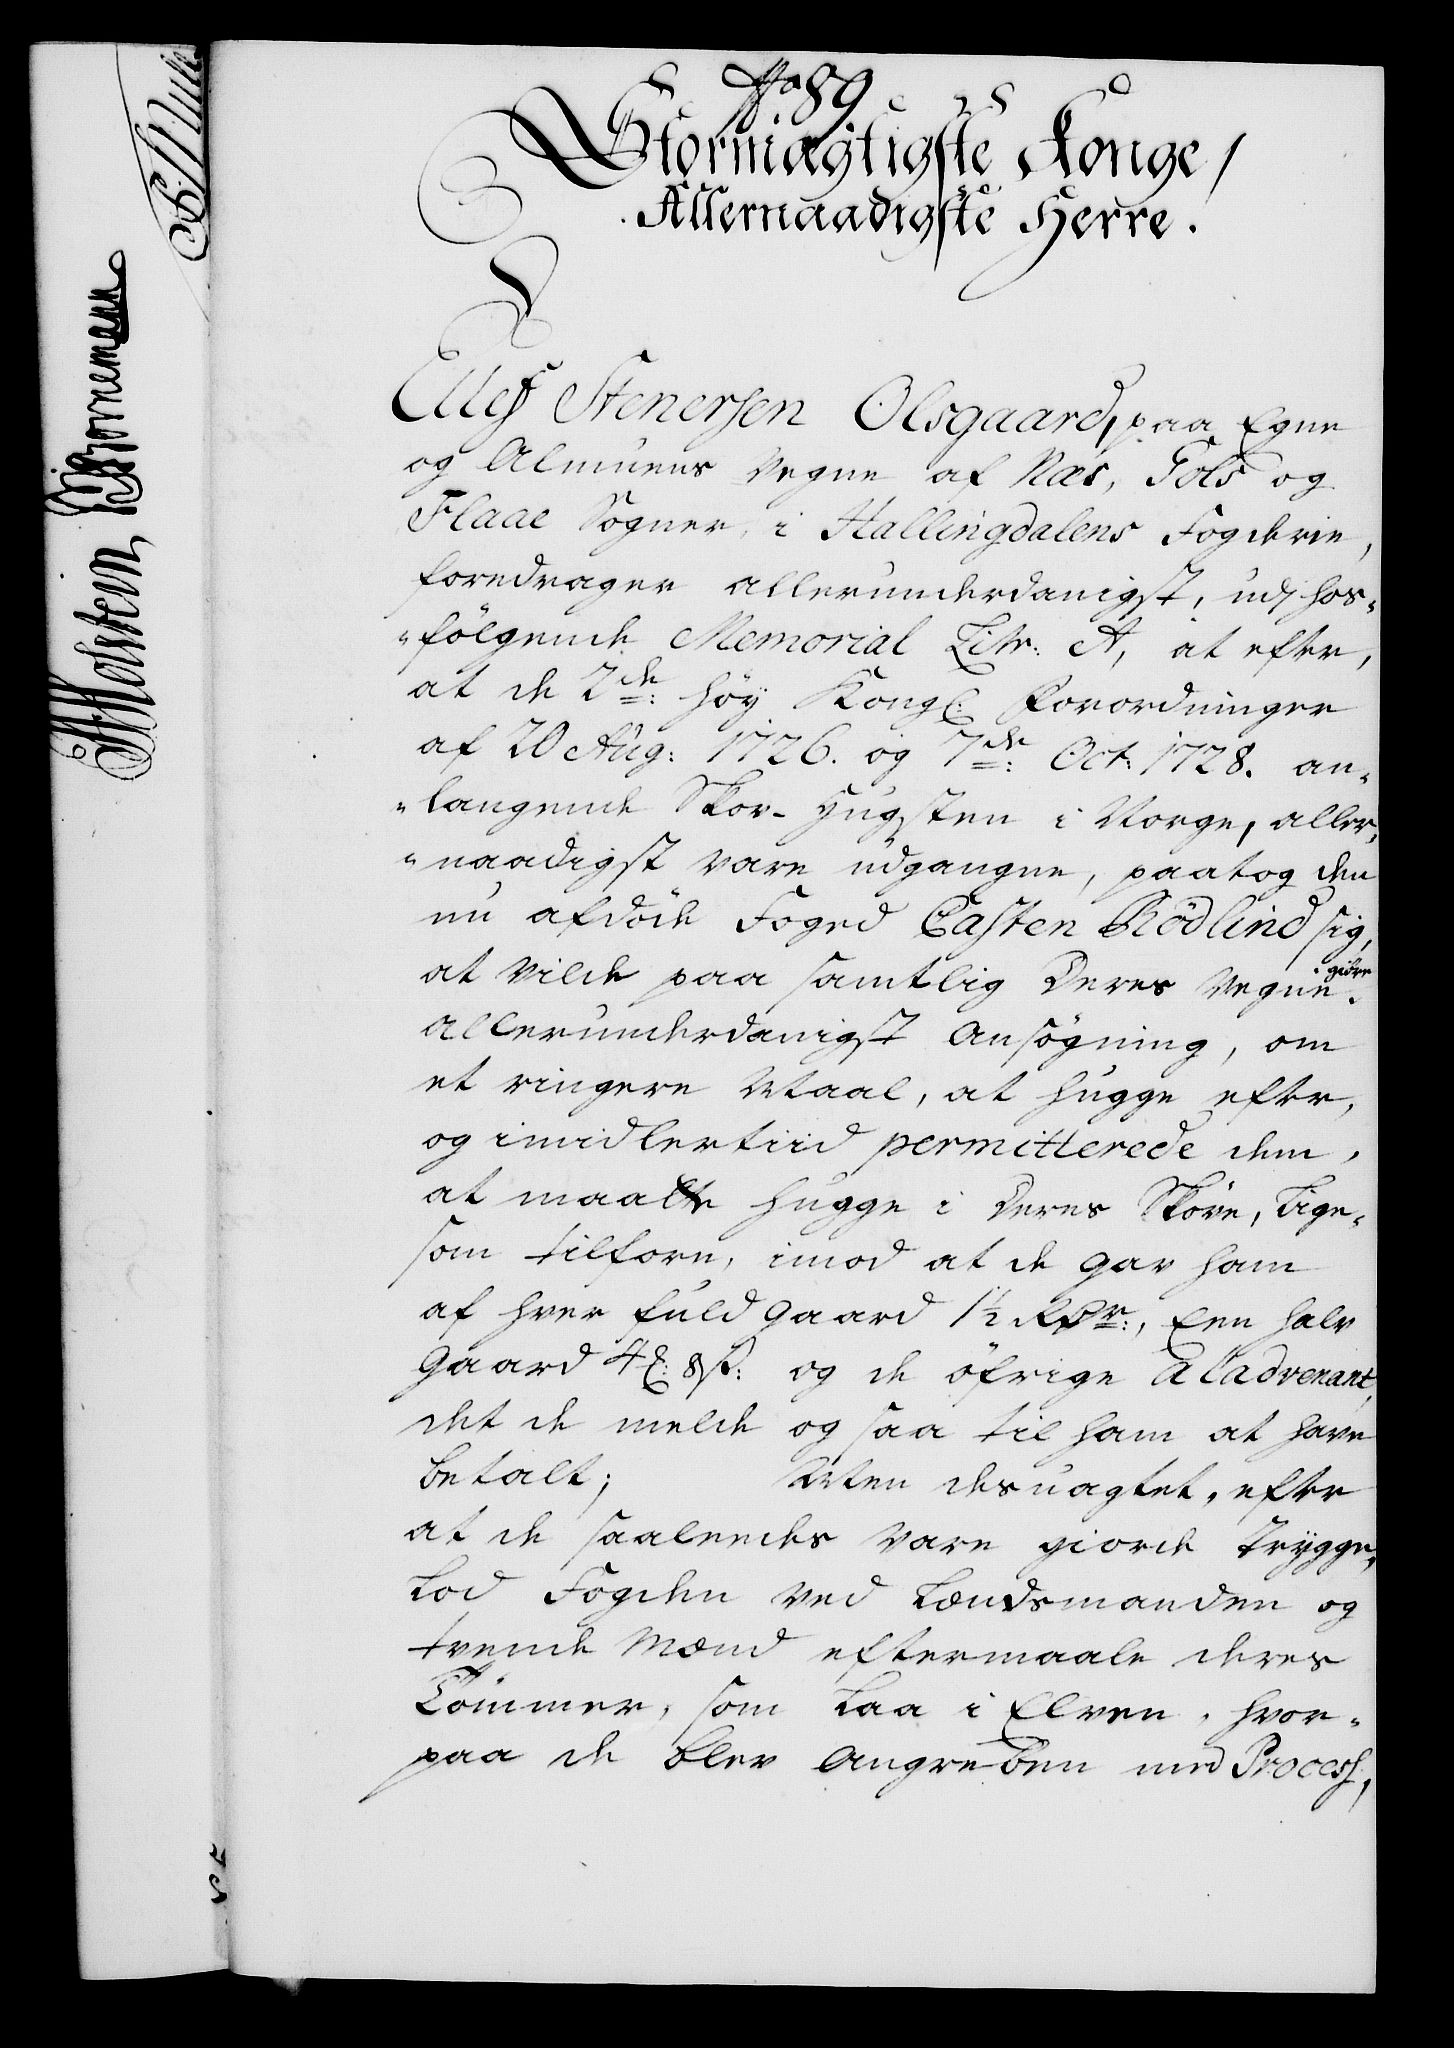 No 89
Stormægtigste Konge /
Allernaadigste Herre.
Ellef Stenersen Olsgaard, paa Egne
og Almuens Vegne af Næs, Gols og
Flaae Sogner, i Hallingdalens Fogderie,
foredrager allerunderdanigst, udj hos-
-følgende Memorial Litr: A, at efter,
at de 2de: høy Kongl: Forordninger
af 20 Aug: 1726. og 7de: Oct: 1728. an-
-langende Skov-Hugsten i Norge, aller-
-naadigst vare udgangne, paatog den
nu afdöde Foged Casten Rödlind sig,
at vilde paa samtlig Deres Vegne giöre
allerunderdanigst Ansögning, om
et ringere Maal, at hugge efter,
og imidlertiid permitterede dem,
at maatte hugge i Deres Skove, lige-
som tilforn, imod at de gav ham
af hver fuld gaard 1½ Rdr:, Een halv
gaard 4 ℔: 8 ß: og de öfrige a ladvenant,
det de melde og saa til ham at have
betalt; Men desuagtet, efter
at de saaledes vare giorde trygge,
lod Fogden ved Lændsmanden og
tvende Mænd eftermaale deres
Tömmer, som laa i Elven, hvor-
paa de blev Angreben med Process,
Holsten, Bornemann